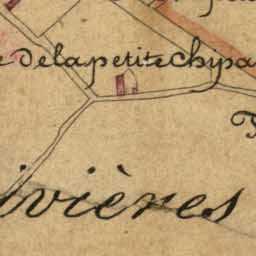 e de la petite Chipa
ivières